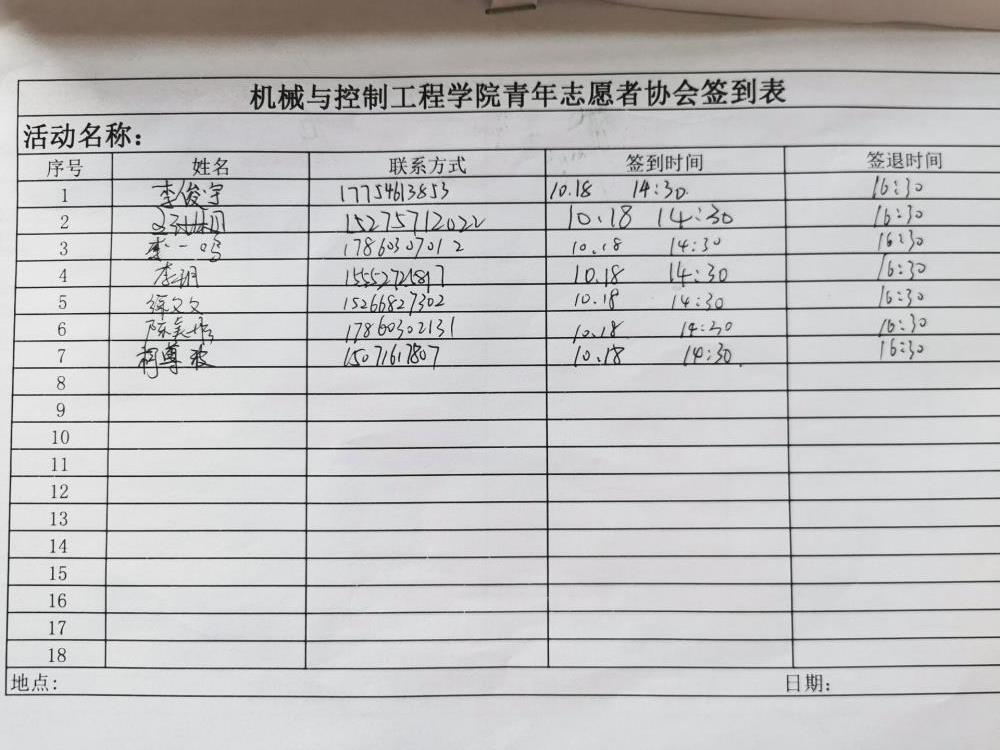 机械与控制工程学院青年志愿者协会签到表
活动名称:
序号 姓名 联系方式 签到时间 签退时间
1 李俊宇 17754613853 10.18 14:30 16:30
2 15275712022 10.18 14:30 16:30
3 李一鸣 17860307012 10.18 14:30 16:30
4 李玥 10.18 14:30 16:30
5 徐文文 15266827302 10.18 14:30 16:30
6 17860302131 10.18 14:30 16:30
7 柯尊波 15071617807 10.18 14:30 16:30
8
9
10
11
12
13
14
15
16
17
18
地点: 日期: